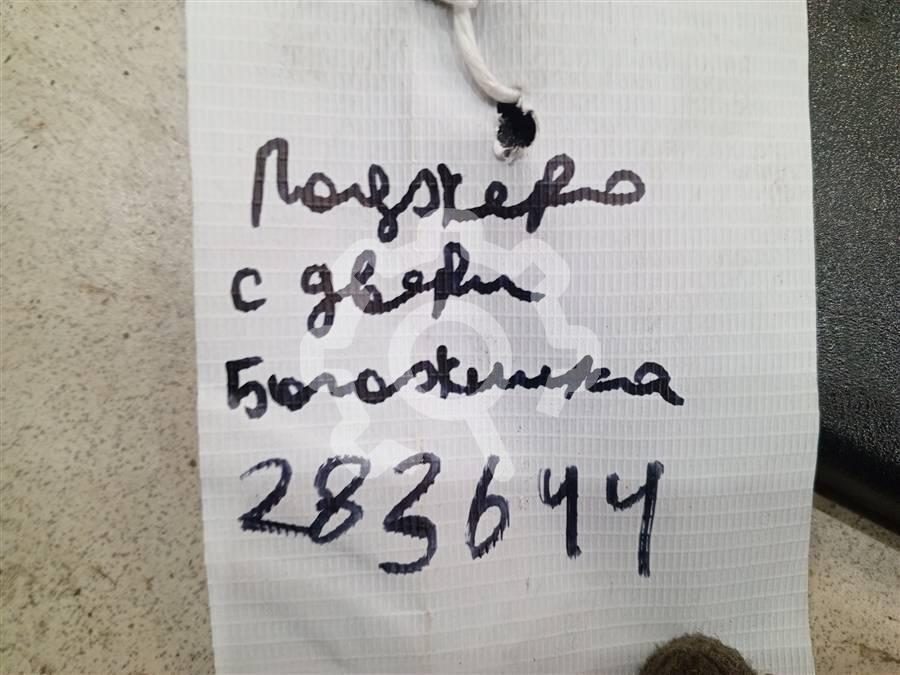 Паджеро
с двери
Богожника
283644